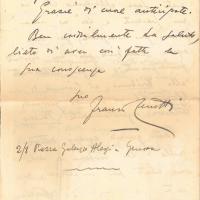 Grazie di cuore anticipate.
Ben cordialmente La saluto,
lieto di aver così fatto la
Sua conoscenza
Suo
Franco
2/8 Piazza Galeazzo Alessi Genova